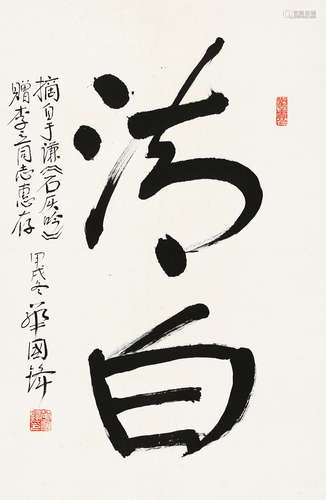 清白
摘自于谦《石灰吟》
赠李之同志惠存
甲戌冬 華國鋒